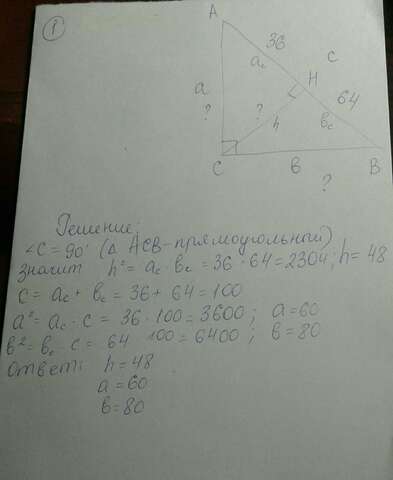 1
A
36
c
a_c
H
a
64
?
?
h
в_c
C
в
B
?
Решение:
∠C = 90° (Δ ACB - прямоугольный)
значит h² = a_c · в_c = 36 · 64 = 2304; h = 48
c = a_c + в_c = 36 + 64 = 100
a² = a_c · c = 36 · 100 = 3600; a = 60
в² = в_c · c = 64 · 100 = 6400; в = 80
ответ: h = 48
a = 60
в = 80